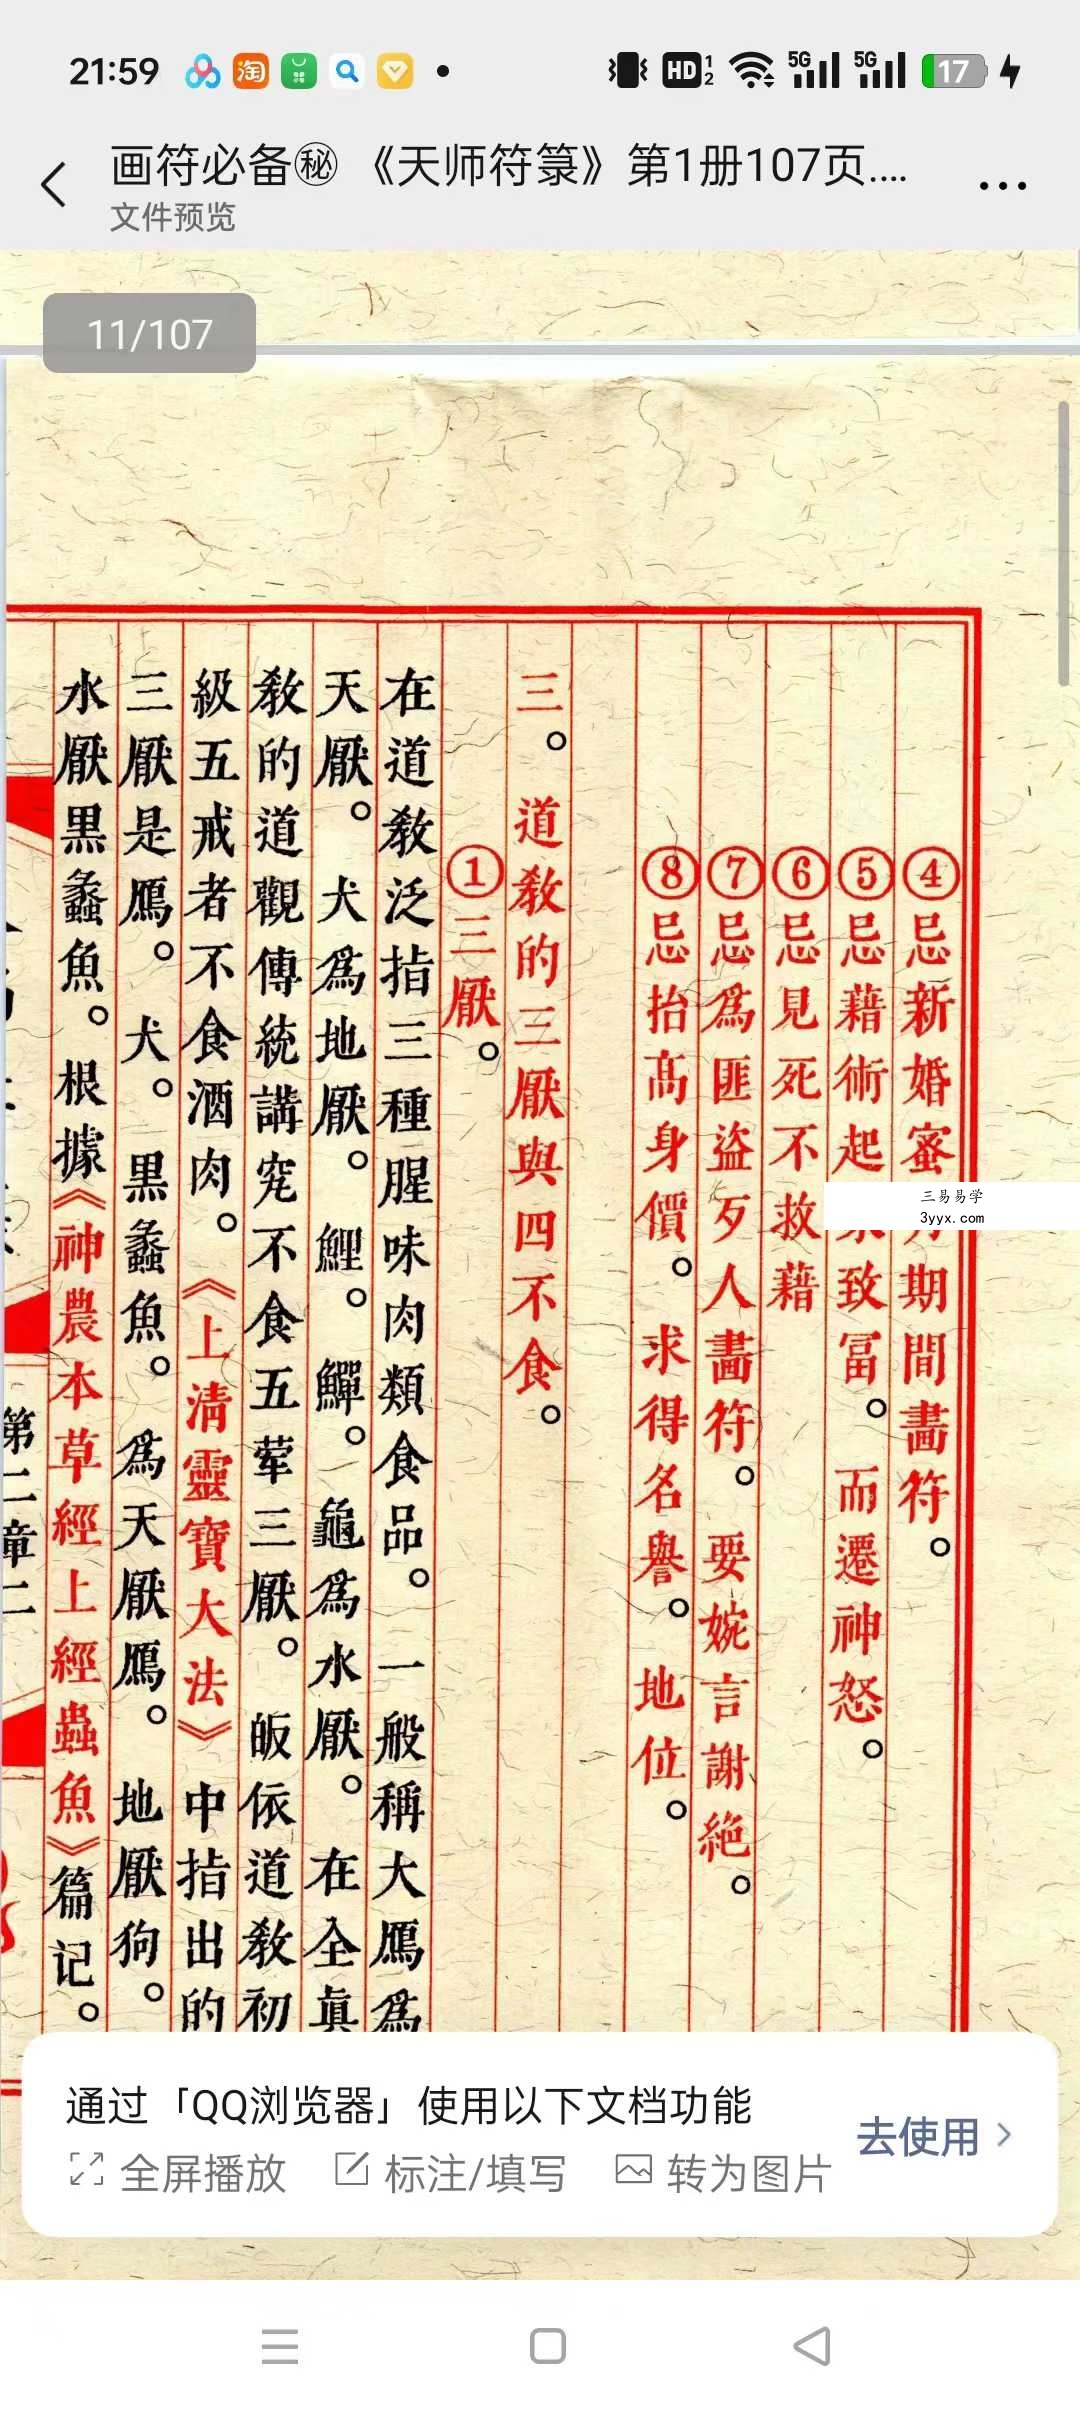 21:59
淘
HD 1 2
5G
5G
17
画符必备㊙《天师符箓》第1册107页....
文件预览
11/107
④忌新婚蜜 期間畫符。
⑤忌藉術起 致冨。而遷神怒。
⑥忌見死不救藉
⑦忌為匪盜歹人畫符。要婉言謝絶。
⑧忌抬髙身價。求得名譽。地位。
三。道教的三厭與四不食。
①三厭。
在道教泛指三種腥味肉類食品。一般稱大鴈為
天厭。犬為地厭。鯉。鱓。龜為水厭。在全真
教的道觀傳統講究不食五荤三厭。皈依道教初
級五戒者不食酒肉。《上清靈寶大法》中指出的
三厭是鴈。犬。黒蠡魚。為天厭鴈。地厭狗。
水厭黒蠡魚。根據《神農本草經上經蟲魚》篇记。
第二章二
三易易学
3yyx.com
通过「QQ浏览器」使用以下文档功能
全屏播放 标注/填写 转为图片
去使用